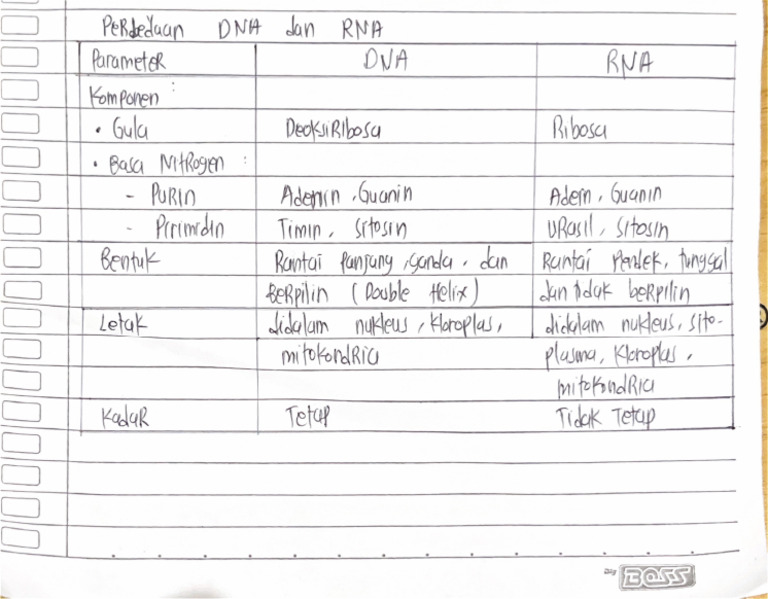 Perbedaan DNA dan RNA
Parameter DNA RNA
Komponen :
• Gula Deoksiribosa Ribosa
• Basa Nitrogen :
- Purin Adenin, Guanin Adein, Guanin
- Pirimidin Timin, Sitosin Urasil, Sitosin
Bentuk Rantai panjang, ganda, dan Rantai Pendek, tunggal
Berpilin (Double Helix) dan tidak berpilin
Letak didalam nukleus, kloroplas, didalam nukleus, sito-
mitokondria plasma, kloroplas,
mitokondria
Kadar Tetap Tidak Tetap
BOSS